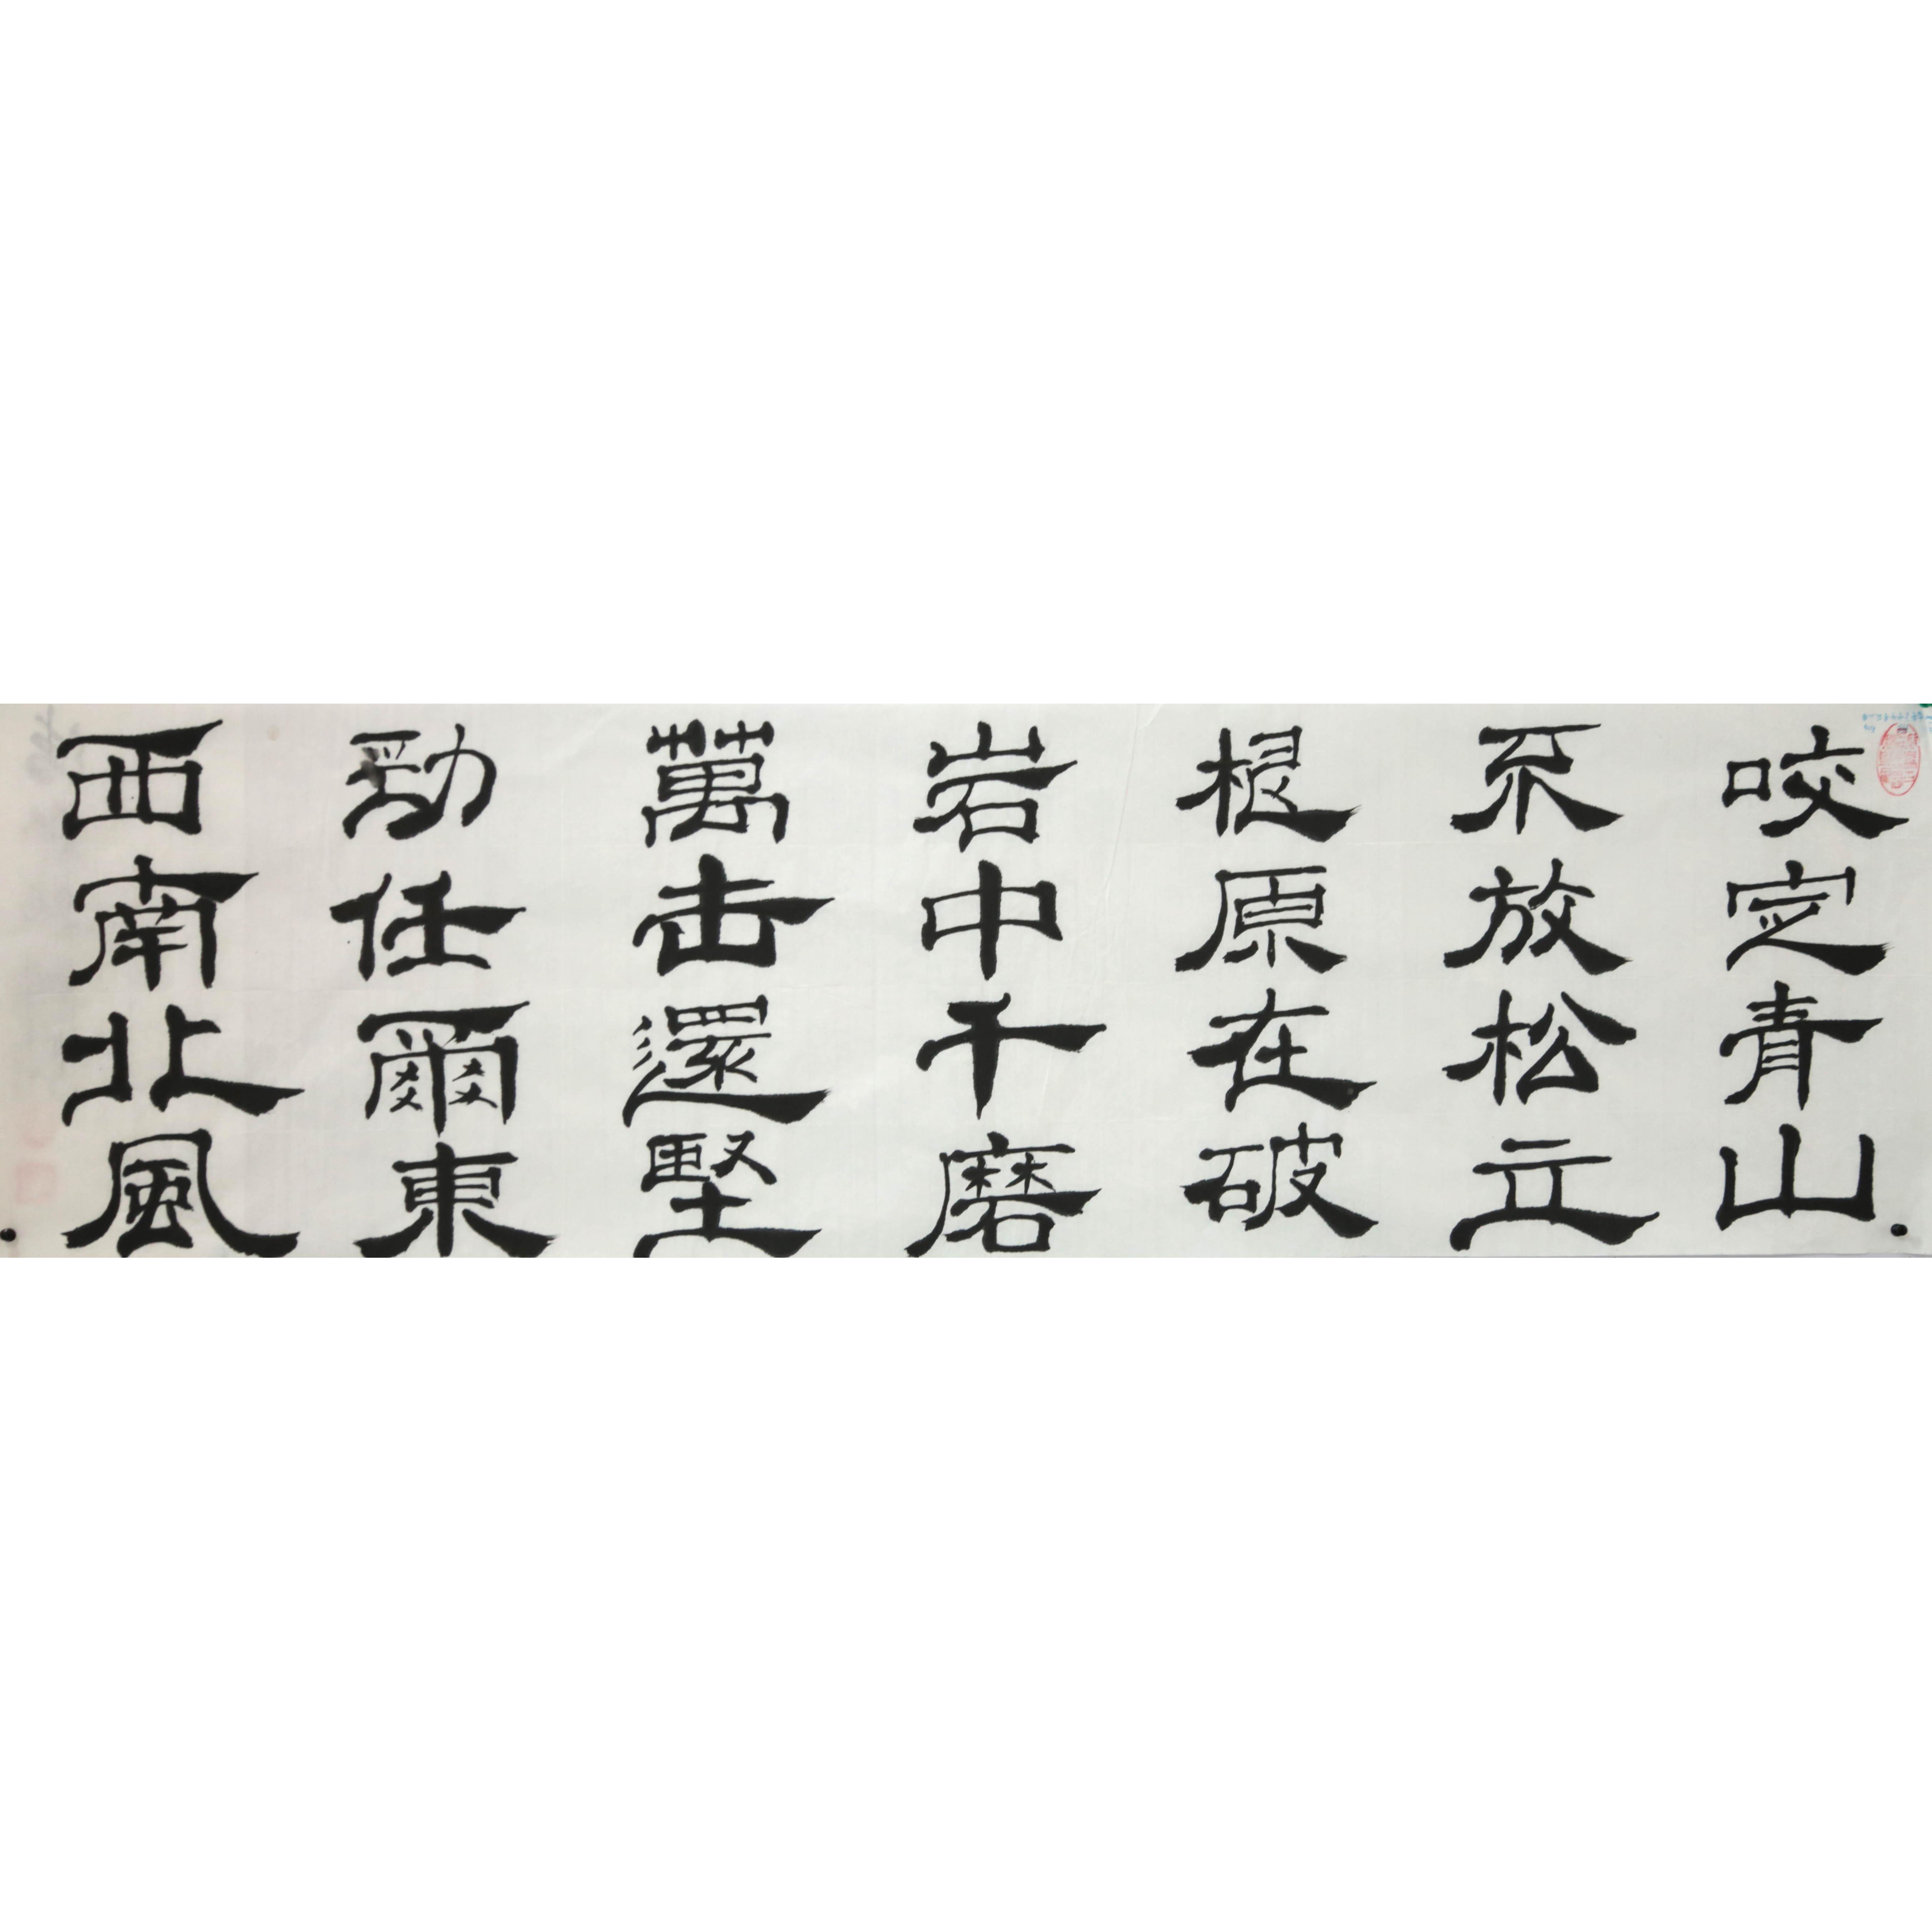 咬定青山
不放松立
根原在破
岩中千磨
萬击還堅
勁任爾東
西南北風